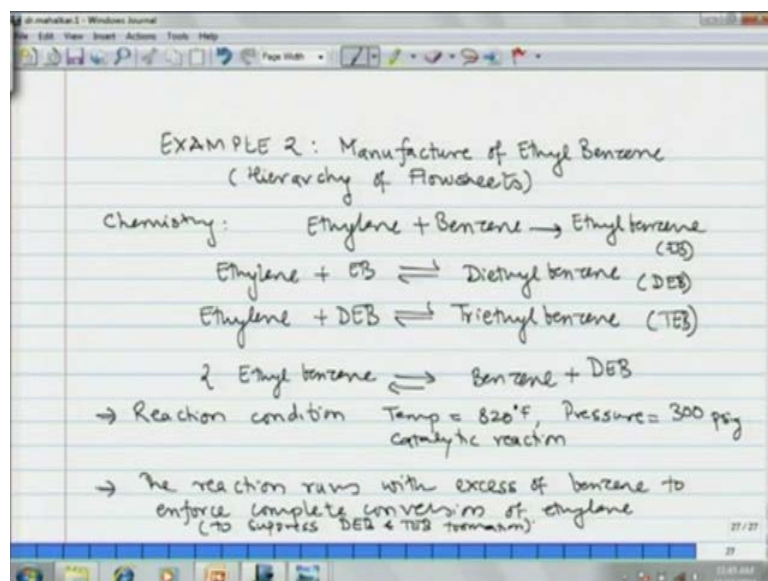 dr.mahalkar.1 - Windows Journal
File Edit View Insert Actions Tools Help
Page Width
EXAMPLE 2: Manufacture of Ethyl Benzene
(Hierarchy of Flowsheets)
Chemistry: Ethylene + Benzene → Ethyl benzene
(EB)
Ethylene + EB ⇌ Diethyl benzene (DEB)
Ethylene + DEB ⇌ Triethyl benzene (TEB)
2 Ethyl benzene ⇌ Benzene + DEB
→ Reaction condition Temp = 820°F, Pressure = 300 psig
Catalytic reaction
→ The reaction runs with excess of benzene to
enforce complete conversion of ethylene
(to suppress DEB & TEB formation).
27 / 27
27